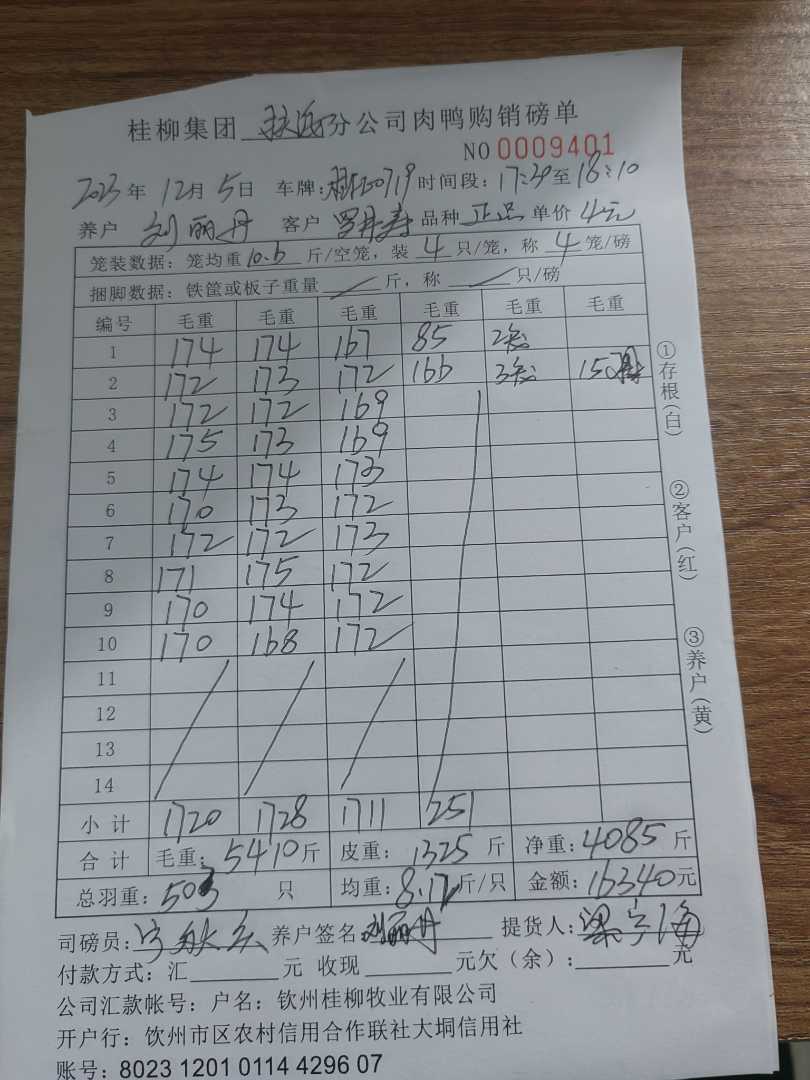 桂柳集团 扶绥分公司肉鸭购销磅单
NO 0009401
2023年 12月 5日 车牌: 时间段: 17:20至18:10
养户 刘丽丹 客户 品种 正品 单价 4元
笼装数据: 笼均重 10.6 斤/空笼, 装 4 只/笼, 称 4 笼/磅
捆脚数据: 铁筐或板子重量 / 斤, 称 / 只/磅
编号 毛重 毛重 毛重 毛重 毛重 毛重
1 174 174 167 85 2笼
2 172 173 172 166 3笼 150只
3 172 172 169
4 175 173 169
5 174 174 173
6 170 173 172
7 172 172 173
8 171 175 172
9 170 174 172
10 170 168 172
11
12
13
14
小计 1720 1728 1711 251
合计 毛重: 5410斤 皮重: 1325 斤 净重: 4085 斤
总羽重: 503 只 均重: 8.12斤/只 金额: 16340元
司磅员: 养户签名 刘丽丹 提货人: 梁宇海
付款方式: 汇 元 收现 元欠(余): 元
公司汇款帐号: 户名: 钦州桂柳牧业有限公司
开户行: 饮州市区农村信用合作联社大垌信用社
账号: 8023 1201 0114 4296 07
①存根(白)
②客户(红)
③养户(黄)